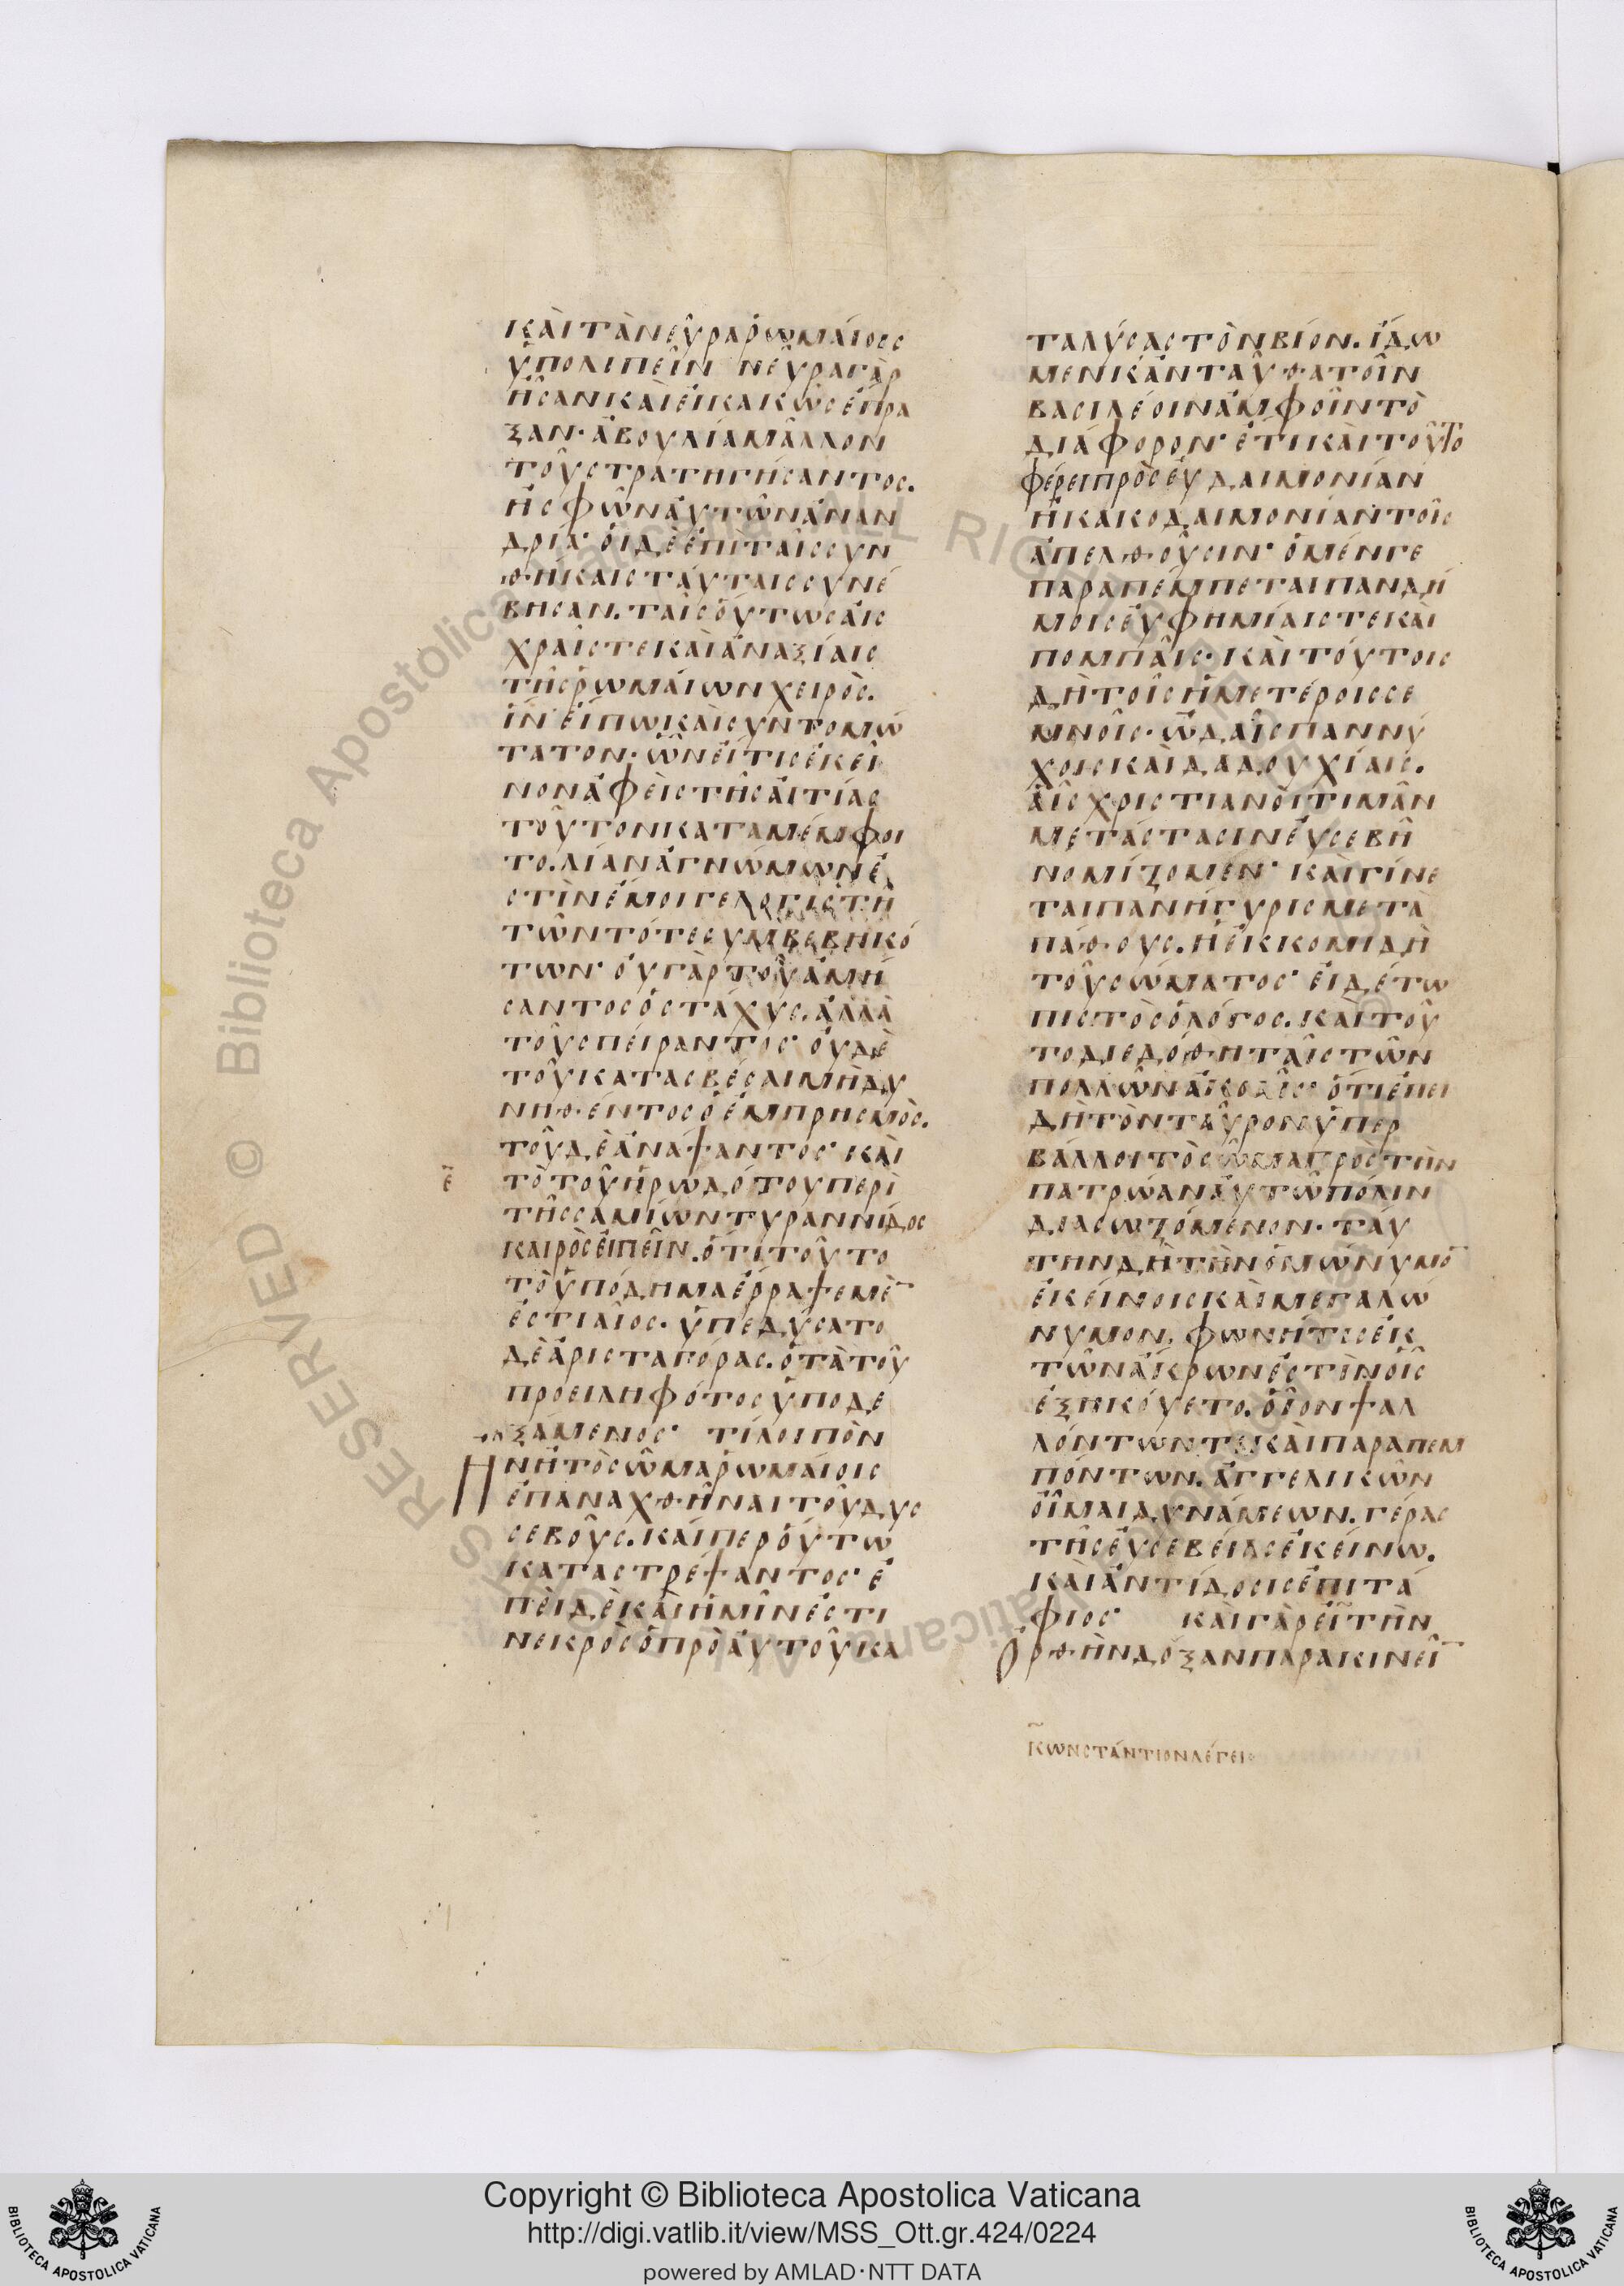 ΚΑῚΤᾺΝΕῦΡΑῬΩΜΑΊΟΙΣ
ὙΠΟΛΙΠΕῖΝ ΝΕῦΡΑΓᾺΡ
ἮΣΑΝΚΑῚΕἸΚΑΚῶΣἔΠΡΑ
ΞΑΝ· ἈΒΟΥΛΊΑΜᾶΛΛΟΝ
ΤΟῦΣΤΡΑΤΗΓΉΣΑΝΤΟΣ.
ἪΣΦῶΝΑὐΤῶΝἈΝΑΝ
ΔΡΊΑ· ΟἹΔῈἘΠῚΤΑῖΣΣΥΝ
ΘΉΚΑΙΣΤΑΎΤΑΙΣΣΥΝΈ
ΒΗΣΑΝ. ΤΑῖΣΟὝΤΩΣΑἸΣ
ΧΡΑῖΣΤΕΚΑῚἈΝΑΞΊΑΙΣ
ΤῆΣῬΩΜΑΊΩΝΧΕΙΡῸΣ.
ἽΝ᾽ΕἼΠΩΚΑῚΣΥΝΤΟΜΏ
ΤΑΤΟΝ· ὯΝΕἼΤΙΣἘΚΕῖ
ΝΟΝἈΦΕῚΣΤῆΣΑἸΤΊΑΣ
ΤΟῦΤΟΝΚΑΤΑΜΈΜΦΟΙ
ΤΟ. ΛΊΑΝἈΓΝΏΜΩΝἘ
ΣΤῚΝἘΜΟΙΓΕΛΟΓΙΣΤῊ
ΤῶΝΤΌΤΕΣΥΜΒΕΒΗΚΌ
ΤΩΝ· ΟὐΓᾺΡΤΟῦἈΜΉ
ΣΑΝΤΟΣὉΣΤΆΧΥΣ. ἈΛΛᾺ
ΤΟῦΣΠΕΊΡΑΝΤΟΣ· ΟὐΔῈ
ΤΟῦΚΑΤΑΣΒΈΣΑΙΜῊΔΥ
ΝΗΘΈΝΤΟΣὉἘΜΠΡΗΣΜῸΣ.
ΤΟῦΔῈἈΝΆΨΑΝΤΟΣ· ΚΑῚ
ΤῸΤΟῦἩΡΩΔΌΤΟΥΠΕΡῚ
ΤῆΣΣΑΜΊΩΝΤΥΡΑΝΝΊΔΟΣ
ΚΑΙΡῸΣΕἸΠΕῖΝ. ὍΤΙΤΟῦΤΟ
ΤῸὙΠΌΔΗΜΑἜΡΡΑΨΕΜῈ̅
ἙΣΤΙΑῖΟΣ· ὙΠΕΔΎΣΑΤΟ
ΔῈἈΡΙΣΤΑΓΌΡΑΣ. ὉΤᾺΤΟῦ
ΠΡΟΕΙΛΗΦΌΤΟΣὙΠΟΔΕ
ΞΆΜΕΝΟΣ· ΤΊΛΟΙΠῸΝ
ἪΝἪΤῸΣῶΜΑῬΩΜΑΊΟΙΣ
ἘΠΑΝΑΧΘῆΝΑΙΤΟῦΔΥΣ
ΣΕΒΟῦΣ. ΚΑΊΠΕΡΟὝΤΩ
ΚΑΤΑΣΤΡΈΨΑΝΤΟΣ· Ἐ
ΠΕῚΔῈΚΑῚἩΜῖΝἘΣΤΙ
ΝΕΚΡῸΣὉΠΡῸΑὐΤΟῦΚΑ
ΤΑΛΎΣΑΣΤῸΝΒΊΟΝ. ἼΔΩ
ΜΕΝΚἈΝΤΑῦΘΑΤΟῖΝ
ΒΑΣΙΛΈΟΙΝἈΜΦΟῖΝΤῸ
ΔΙΆΦΟΡΟΝ· ἜΤΙΚΑῚΤΟῦΤΟ
ΦΈΡΕΙΠΡῸΣΕὐΔΑΙΜΟΝΊΑΝ
ἪΚΑΚΟΔΑΙΜΟΝΊΑΝΤΟῖΣ
ἈΠΕΛΘΟῦΣΙΝ· ὉΜΈΝΓΕ
ΠΑΡΑΠΈΜΠΕΤΑΙΠΑΝΔΉ
ΜΟΙΣΕὐΦΗΜΊΑΙΣΤΕΚΑῚ
ΠΟΜΠΑῖΣ· ΚΑῚΤΟΎΤΟΙΣ
ΔῊΤΟῖΣἩΜΕΤΈΡΟΙΣΣΕ
ΜΝΟῖΣ· ὨΔΑῖΣΠΑΝΝΎ
ΧΟΙΣΚΑῚΔΑΔΟΥΧΊΑΙΣ.
ΑἿΣΧΡΙΣΤΙΑΝΟῚΤΙΜᾶΝ
ΜΕΤΆΣΤΑΣΙΝΕὐΣΕΒῆ
ΝΟΜΊΖΟΜΕΝ· ΚΑῚΓΊΝΕ
ΤΑΙΠΑΝΉΓΥΡΙΣΜΕΤᾺ
ΠΆΘΟΥΣ. ἩἘΚΚΟΜΙΔῊ
ΤΟῦΣΏΜΑΤΟΣ· ΕἸΔΈΤΩ
ΠΙΣΤῸΣὉΛΌΓΟΣ. ΚΑῚΤΟῦ
ΤΟΔΙΕΔΌΘΗΤΑῖΣΤῶΝ
ΠΟΛΛῶΝἈΚΟΑῖΣ· ὍΤΙἘΠΕΙ
ΔῊΤῸΝΤΑῦΡΟΝὙΠΕΡ
ΒΆΛΛΟΙΤῸΣῶΜΑΠΡῸΣΤῊΝ
ΠΑΤΡΏΑΝΑὐΤῶΠΌΛΙΝ
ΔΙΑΣΩΖΌΜΕΝΟΝ· ΤΑΎ
ΤΗΝΔῊΤῊΝὉΜΏΝΥΜΟ̅
ἘΚΕΊΝΟΙΣΚΑῚΜΕΓΑΛΩ
ΝΥΜΟΝ. ΦΩΝΉΤΙΣἘΚ
ΤῶΝἌΚΡΩΝἘΣΤῚΝΟἿΣ
ἘΞΗΚΟΎΕΤΟ. ΟἿΟΝΨΑΛ
ΛΌΝΤΩΝΤΕΚΑῚΠΑΡΑΠΕΜ
ΠΌΝΤΩΝ. ἈΓΓΕΛΙΚῶΝ
ΟἾΜΑΙΔΥΝΆΜΕΩΝ. ΓΈΡΑΣ
ΤῆΣΕὐΣΕΒΕΊΑΣἘΚΕΊΝΩ.
ΚΑῚἈΝΤΊΔΟΣΙΣἘΠΙΤΆ
ΦΙΟΣ· ΚΑῚΓᾺΡΕἸΤῊΝ
ὈΡΘῊΝΔΌΞΑΝΠΑΡΑΚΙΝΕῖ̅
ΚΩΝΣΤΆΝΤΙΟΝΛΈΓΕΙ
Copyright © Biblioteca Apostolica Vaticana
http://digi.vatlib.it/view/MSS_Ott.gr.424/0224
powered by AMLAD·NTT DATA